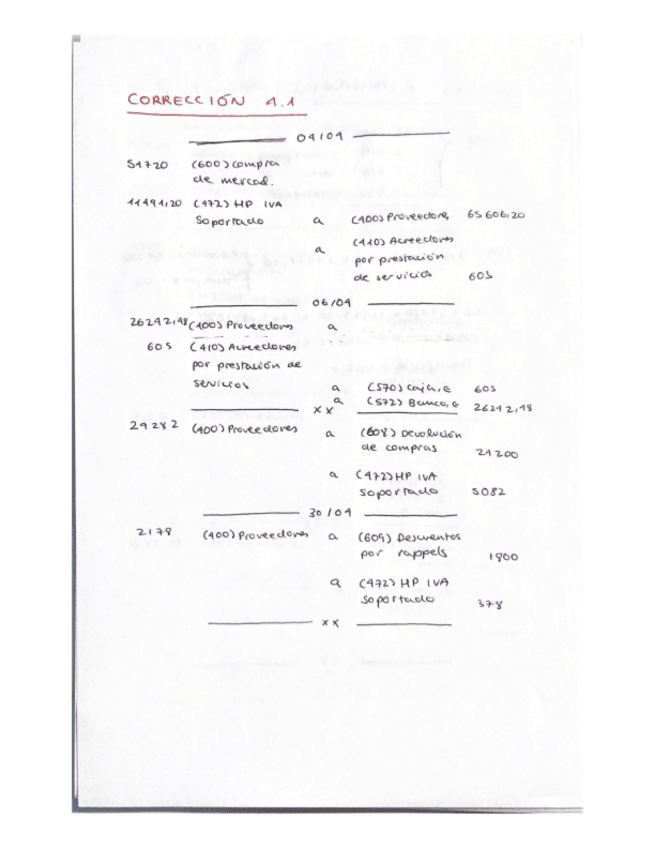 CORRECCIÓN 4.1
04/04
54720 (600) compra
de mercad.
11491,20 (472) HP IVA
Soportado a (400) Proveedores 65606,20
a (410) Acreedores
por prestación
de servicios 605
06/04
26242,48 (400) Proveedores a
605 (410) Acreedores
por prestación de
servicios a (570) Caja, € 605
a (572) Banco, € 26242,48
xx
29282 (400) Proveedores a (608) Devolución
de compras 24200
a (472) HP IVA
soportado 5082
30/04
2178 (400) Proveedores a (609) Descuentos
por rappels 1800
a (472) HP IVA
soportado 378
xx